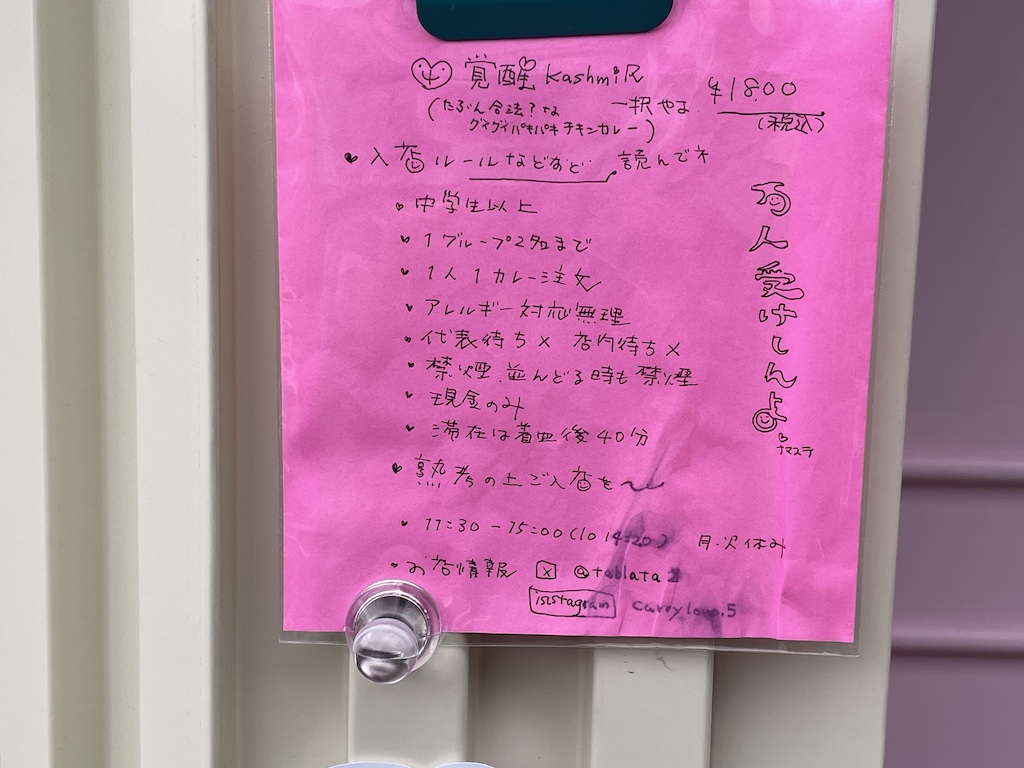 覚醒 KashmiR 一択やよ ¥1800
(税込)
(たぶん合法?な
グイグイバキバキチキンカレー)
入店ルールなどなど 読んでネ
中学生以上
1グループ2名まで
1人1カレー注文
アレルギー対応無理
代表待ち× 店内待ち×
禁煙.並んどる時も禁煙
現金のみ
滞在は着皿後40分
熟考の上ご入店を〜
11:30-15:00(lo 14:20) 月・火休み
お店情報 X @tablata2
isistagram currylove.5
万人受けしんよ
ナマステ